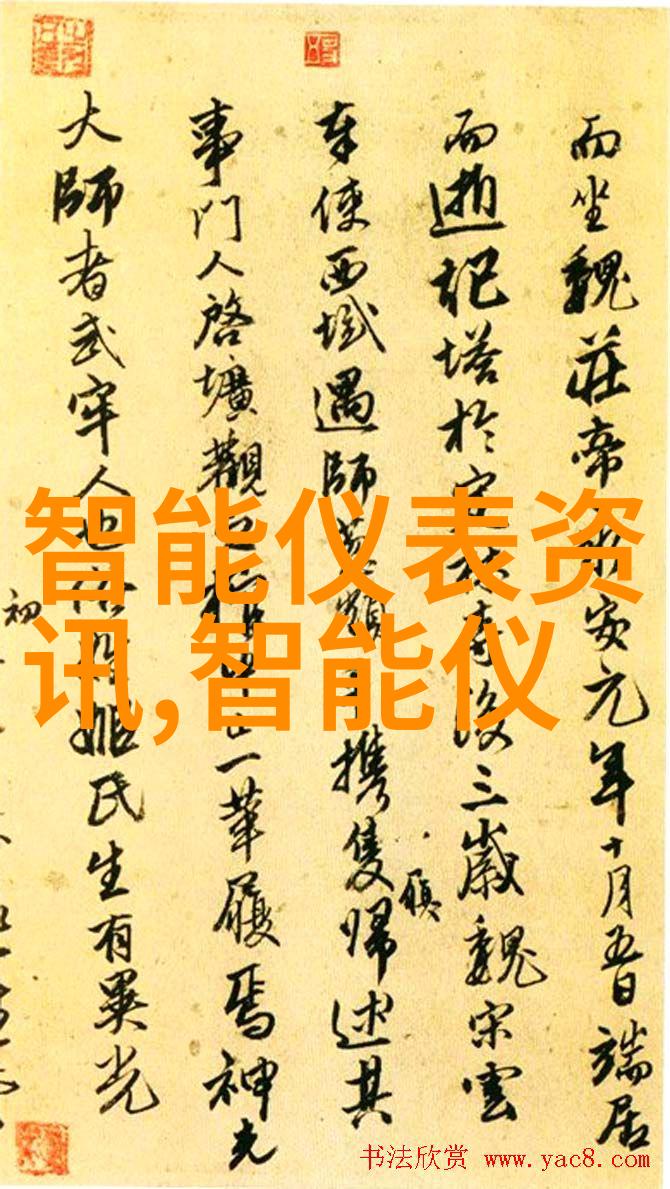 而坐魏莊帝永安元年十月五日端居
而逝記塔於定林寺後三歲魏宋雲
奉使西域遇師葱嶺手攜隻歸述其
履
事門人啓壙觀之一革履焉神光
大師者武牢人也俗姬氏生有異光
初
智能仪表资
讯,智能仪
书法欣赏 www.yac8.com